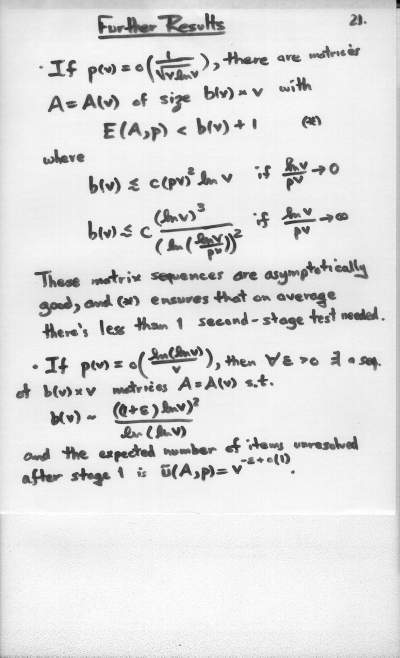 Further Results 21.
· If p(v) = o(1/√(v ln v)), there are matrices
A = A(v) of size b(v) × v with
E(A,p) < b(v) + 1 (*)
where
b(v) ≲ c(pv)² ln v if ln v/pv → 0
b(v) ≲ c (ln v)³/(ln(ln v/pv))² if ln v/pv → ∞
These matrix sequences are asymptotically
good, and (*) ensures that on average
there's less than 1 second-stage test needed.
· If p(v) = o(ln(ln v)/v), then ∀ε>0 ∃ a seq.
of b(v)×v matrices A = A(v) s.t.
b(v) ~ ((1+ε) ln v)²/ln(ln v)
and the expected number of items unresolved
after stage 1 is ū(A,p) = v^(-ε+o(1)).